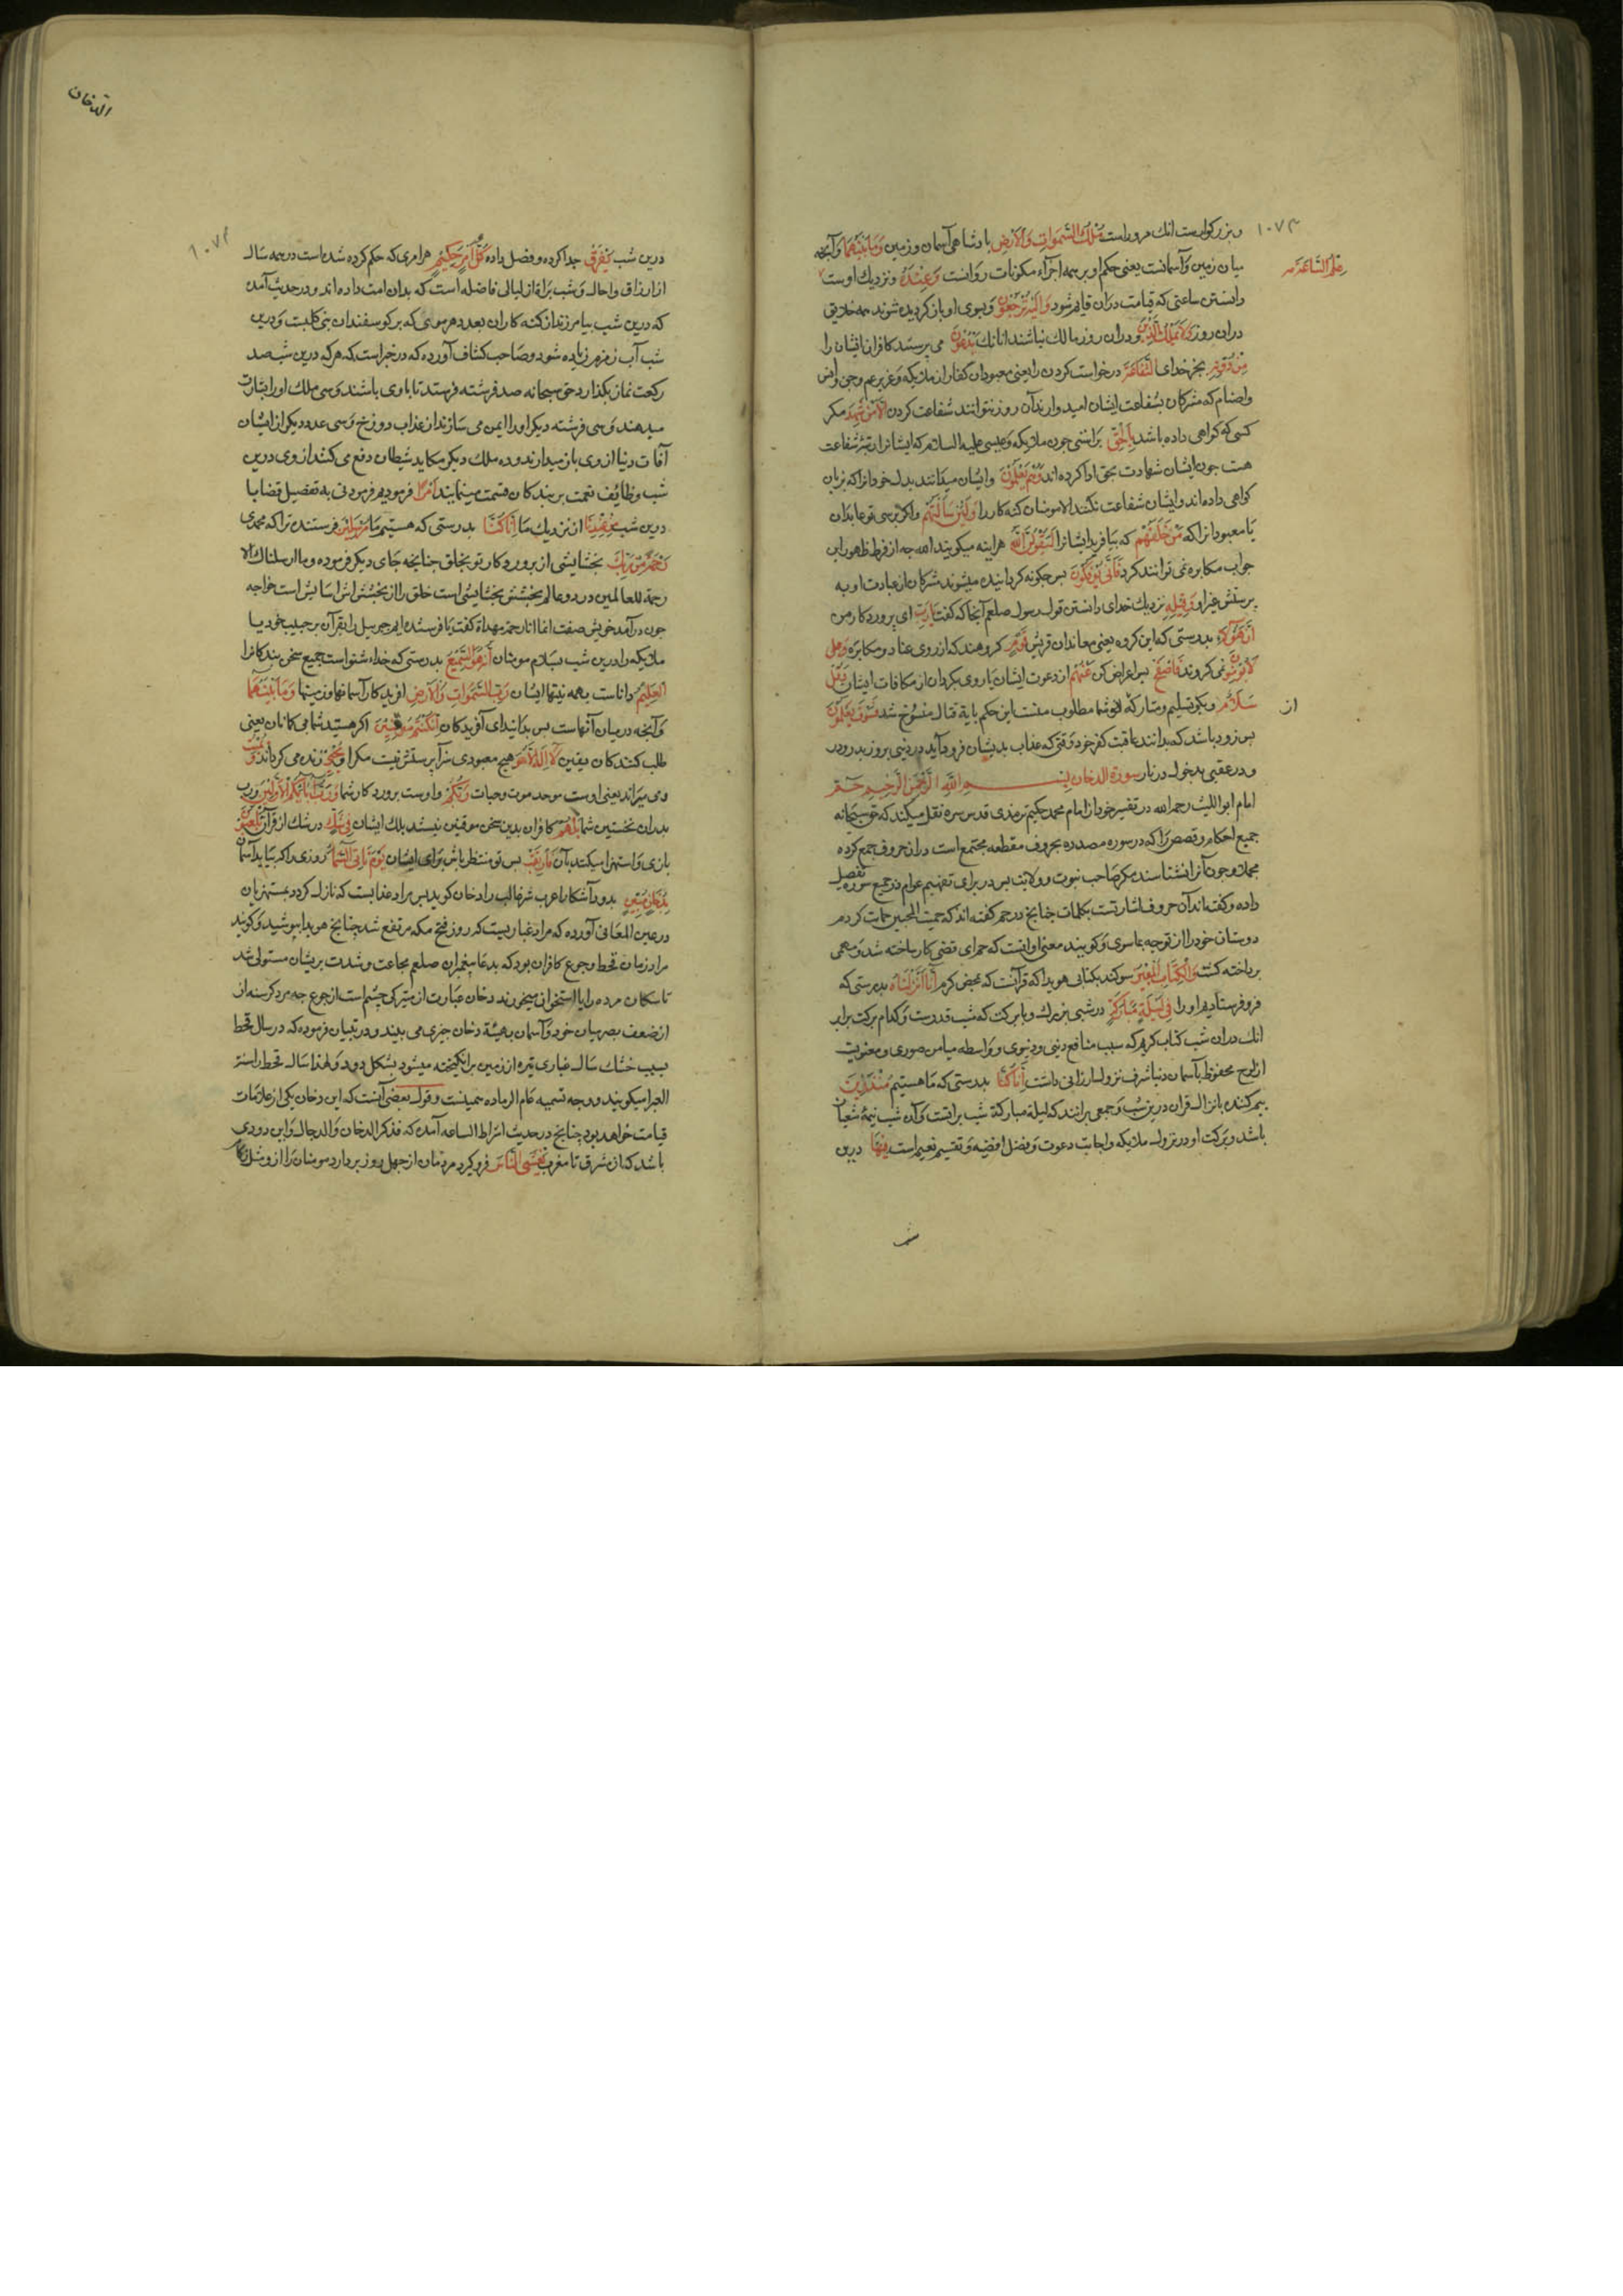 ۱۰۷۳
و بزرگوارست انک مر وراست مُلْكُ السَّمَوَاتِ وَالْاَرْضِ بادشاهی آسمان و زمین وَمَا بَيْنَهُمَا وآنچه
میان زمین و آسمانست یعنی حکم او بر همه اجزاء مکونات روانست وَعِنْدَهُ و نزدیک اوست
عِلْمُ السَّاعَةِ
دانستن ساعتی که قیامت دران قایم شود وَاِلَيْهِ تُرْجَعُونَ و بسوی او باز کردیده شوند همه خلایق
دران روز وَلَا يَمْلِكُ الَّذِينَ و دران روز مالک نباشند انانک يَدْعُونَ می پرستند کافران ایشان را
مِنْ دُونِهِ بجز خدای الشَّفَاعَةَ درخواست کردن را یعنی معبودان کفار از ملایکه و عزیر و جن و انس
و اصنام که مشرکان بشفاعت ایشان امید وارند آن روز نتوانند شفاعت کردن اِلَّا مَنْ شَهِدَ مکر
کسی که کواهی داده باشد بِالْحَقِّ براستی چون ملایکه و عیسی علیه السلام که ایشانرا شفاعت
هست جون ایشان شهادت بحق ادا کرده اند وَهُمْ يَعْلَمُونَ و ایشان میدانند بدل خود انرا که بزبان
کواهی داده اند و ایشان شفاعت نکنند الا مومنان کنه کار را وَلَئِنْ سَاَلْتَهُمْ و اکر بپرسی تو عابدان
یا معبودانرا که مَنْ خَلَقَهُمْ که بیافرید ایشانرا لَيَقُولُنَّ اللَّهُ هراینه میکویند الله چه از فرط ظهور این
جواب مکابره نمی توانند کرد فَاَنَّى يُؤْفَكُونَ بس چکونه کردانیده میشوند مشرکان از عبادت او به
پرستش غیر او وَقِيلِهِ نزدیک خدای دانستن قول رسول صلعم آنجا که کفت يَارَبِّ ای پروردکار من
اِنَّ هَؤُلَاءِ بدرستی که این کروه یعنی معاندان قریش قَوْمٌ کروهند که از روی عناد و مکابره
لَا يُؤْمِنُونَ نمی کروند فَاصْفَحْ بس اعراض کن عَنْهُمْ از دعوت ایشان یا روی بکردان از مکافات ایشان وَقُلْ
سَلَامٌ و بکو تسلیم و متارکه از شما مطلوب منست این حکم بآیة قتال منسوخ شد فَسَوْفَ يَعْلَمُونَ
از
بس زود باشد که بدانند عاقبت کفر خود وقتی که عذاب بدیشان فرود آید در دنیی بروز بدر
و در عقبی بدخول در نار سورة الدخان بِسْمِ اللَّهِ الرَّحْمَنِ الرَّحِيمِ حم
امام ابو اللیث رحمه الله در تفسیر خود از امام محمد حکیم ترمذی قدس سره نقل میکند که حق سبحانه
جمیع احکام و قصص را که در سوره مصدره بحروف مقطعه مجتمع است دران حروف جمع کرده
مجملا و چون آنرا نشناسند مکر صاحب نبوت و ولایت بس در برای تفهیم عوام در جمیع سوره تفصیل
داده و کفته اند آن حروف اشارتست بکلمات چنانچ در حم کفته اند که حمیت المحبین حمایت کردم
دوستان خود را از توجه بماسوی و کویند معنی او انست که حم ای قضی کار ساخته شد و مهمی
پرداخته کشت وَالْكِتَابِ الْمُبِينِ سوکند بکتابی هویدا که قرآنست که بمحض کرم اِنَّا اَنْزَلْنَاهُ بدرستی که
فرو فرستادیم او را فِي لَيْلَةٍ مُبَارَكَةٍ در شبی بزرک و با برکت که شب قدرست و کدام برکت برابر
انک دران شب کتاب کریم که سبب منافع دینی و دنیوی و واسطه میامن صوری و معنویت
از لوح محفوظ بآسمان دنیا شرف نزول ارزانی داشت اِنَّا كُنَّا بدرستی که ما هستیم مُنْذِرِينَ
بیم کننده بانزال قران درین شب و جمعی برانند که لیلة مبارکة شب براتست و آن شب نیمه شعبان
باشد و برکت او در نزول ملایکه و اجابت دعوت و فصل اقضیه و تقسیم نعیم است فِيهَا درین
الدخان
درین شب يُفْرَقُ جدا کرده و فصل داده كُلُّ اَمْرٍ حَكِيمٍ هر امری که حکم کرده شده است در همه سال
از ارزاق و اجال و شب براة از لیالی فاضله است که بدان امت داده اند و در حدیث آمده
که درین شب بیامرزند از کنه کاران بعدد هر مویی که بر کوسفندان بنی کلبست و درین
شب آب زمزم زیاده شود و صاحب کشاف آورده که در خبر است که هر که درین شب صد
رکعت نماز بکذارد حق سبحانه صد فرشته فرستد تا با وی باشند و سی ملک او را بشارت
میدهند و سی فرشته دیکر او را ایمن می سازند از عذاب دوزخ و سی عدد دیکر از ایشان
آفات دنیا از وی باز میدارند و ده ملک دیکر مکاید شیطان دفع می کنند از وی و درین
شب وظایف نعمت بر بندکان قسمت مینمایند اَمْرًا فرمودیم فرمودنی به تفصیل قضایا
درین شب مِنْ عِنْدِنَا از نزدیک ما اِنَّا كُنَّا بدرستی که هستیم ما مُرْسِلِينَ فرستنده ترا که محمدی
رَحْمَةً مِنْ رَبِّكَ بخشایشی از پروردکار تو بخلق چنانچه جای دیکر فرموده وما ارسلناك الا
رحمة للعالمین در دو عالم بخشش بخشایشی است خلق را از بخشش اش اسایش است خواجه
چون در آمد خویش صفت انما انا رحمة مهداة کفت یا فرستنده ایم جبریل را بقرآن بر حبیب خود یا
ملایکه را درین شب بسلام مومنان اِنَّهُ هُوَ السَّمِيعُ بدرستی که خداء شنواست جمیع سخن بندکانرا
الْعَلِيمُ داناست بهمه نیتهاء ایشان رَبِّ السَّمَوَاتِ وَالْاَرْضِ افریدکار آسمانها و زمینها وَمَا بَيْنَهُمَا
وآنچه درمیان آنهاست بس بدانید ای آفریدکان اِنْ كُنْتُمْ مُوقِنِينَ اکر هستید شما بی کمانان یعنی
طلب کنندکان یقین لَا اِلَهَ اِلَّا هُوَ هیچ معبودی سزای پرستش نیست مکر او يُحْيِي زنده می کرداند وَيُمِيتُ
و می میراند یعنی اوست موجد موت و حیات رَبُّكُمْ و اوست پروردکار شما وَرَبُّ آبَائِكُمُ الْاَوَّلِينَ و رب
پدران نخستین شما بَلْ هُمْ کافران بدین سخن موقنین نیستند بلک ایشان فِي شَكٍّ در شک از قرآن يَلْعَبُونَ
بازی و استهزا میکنند بآن فَارْتَقِبْ بس تو منتظر باش برای ایشان يَوْمَ تَاْتِي السَّمَاءُ روزی را که بیاید آسمان
بِدُخَانٍ مُبِينٍ بدود آشکارا عرب شر غالب را دخان کوید بس مراد عذابیست که نازل کردد بمستهزیان
در عین المعانی آورده که مراد غباریست که روز فتح مکه مرتفع شد چنانچ هوا بپوشید و کویند
مراد زمان قحط و جوع کافران بود که بدعا پیغمبران صلعم مجاعت و شدت بریشان مستولی شد
تا سکان مرده را با استخوان میخورند دخان عبارت از تیرکی چشم است از جوع چه مرد کرسنه از
از ضعف بصر میان خود و آسمان بهیئة دخان چیزی می بیند و در تبیان فرموده که در سال قحط
بسبب خشک سال غباری تیره از زمین برانکیخته میشود بشکل دود و لهذا سال قحط را سنة
الغبرا میکویند و وجه تسمیه عام الرماده همینست و قول بعضی آنست که این دخان یکی از علامات
قیامت خواهد بود چنانچ در حدیث اشراط الساعه آمده که فذکر الدخان والدجال و این دودی
باشد که از مشرق تا مغرب يَغْشَى النَّاسَ فرو کیرد مردمان از چهل روز بردارد مومنان را ازو مثل زکام